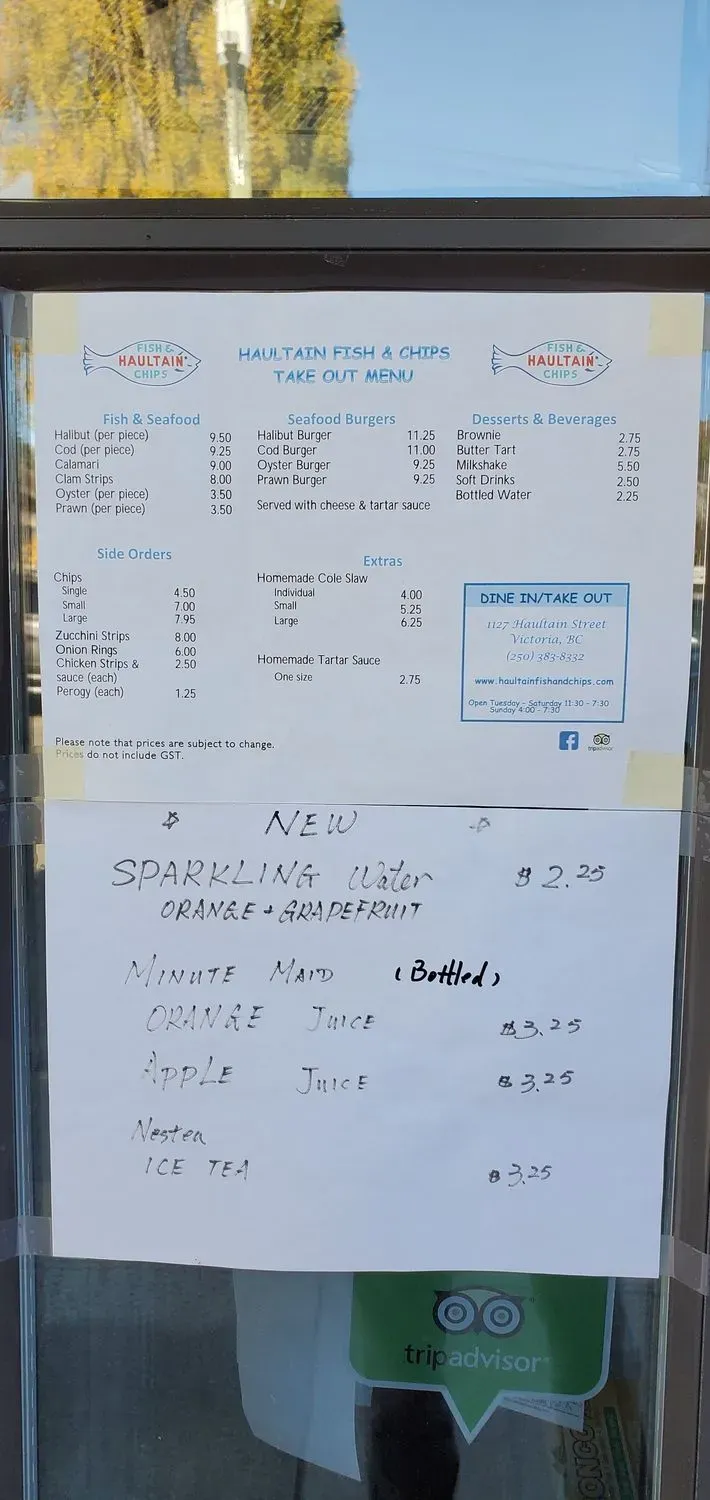 FISH &
HAULTAIN
CHIPS
HAULTAIN FISH & CHIPS
TAKE OUT MENU
FISH &
HAULTAIN
CHIPS
Fish & Seafood
Halibut (per piece) 9.50
Cod (per piece) 9.25
Calamari 9.00
Clam Strips 8.00
Oyster (per piece) 3.50
Prawn (per piece) 3.50
Seafood Burgers
Halibut Burger 11.25
Cod Burger 11.00
Oyster Burger 9.25
Prawn Burger 9.25
Served with cheese & tartar sauce
Desserts & Beverages
Brownie 2.75
Butter Tart 2.75
Milkshake 5.50
Soft Drinks 2.50
Bottled Water 2.25
Side Orders
Chips
Single 4.50
Small 7.00
Large 7.95
Zucchini Strips 8.00
Onion Rings 6.00
Chicken Strips & 2.50
sauce (each)
Perogy (each) 1.25
Extras
Homemade Cole Slaw
Individual 4.00
Small 5.25
Large 6.25
Homemade Tartar Sauce
One size 2.75
DINE IN/TAKE OUT
1127 Haultain Street
Victoria, BC
(250) 383-8332
www.haultainfishandchips.com
Open Tuesday - Saturday 11:30 - 7:30
Sunday 4:00 - 7:30
f
tripadvisor
Please note that prices are subject to change.
Prices do not include GST.
NEW
SPARKLING Water $2.25
ORANGE + GRAPEFRUIT
MINUTE MAID (Bottled)
ORANGE JUICE $3.25
APPLE JUICE $3.25
Nestea
ICE TEA $3.25
tripadvisor